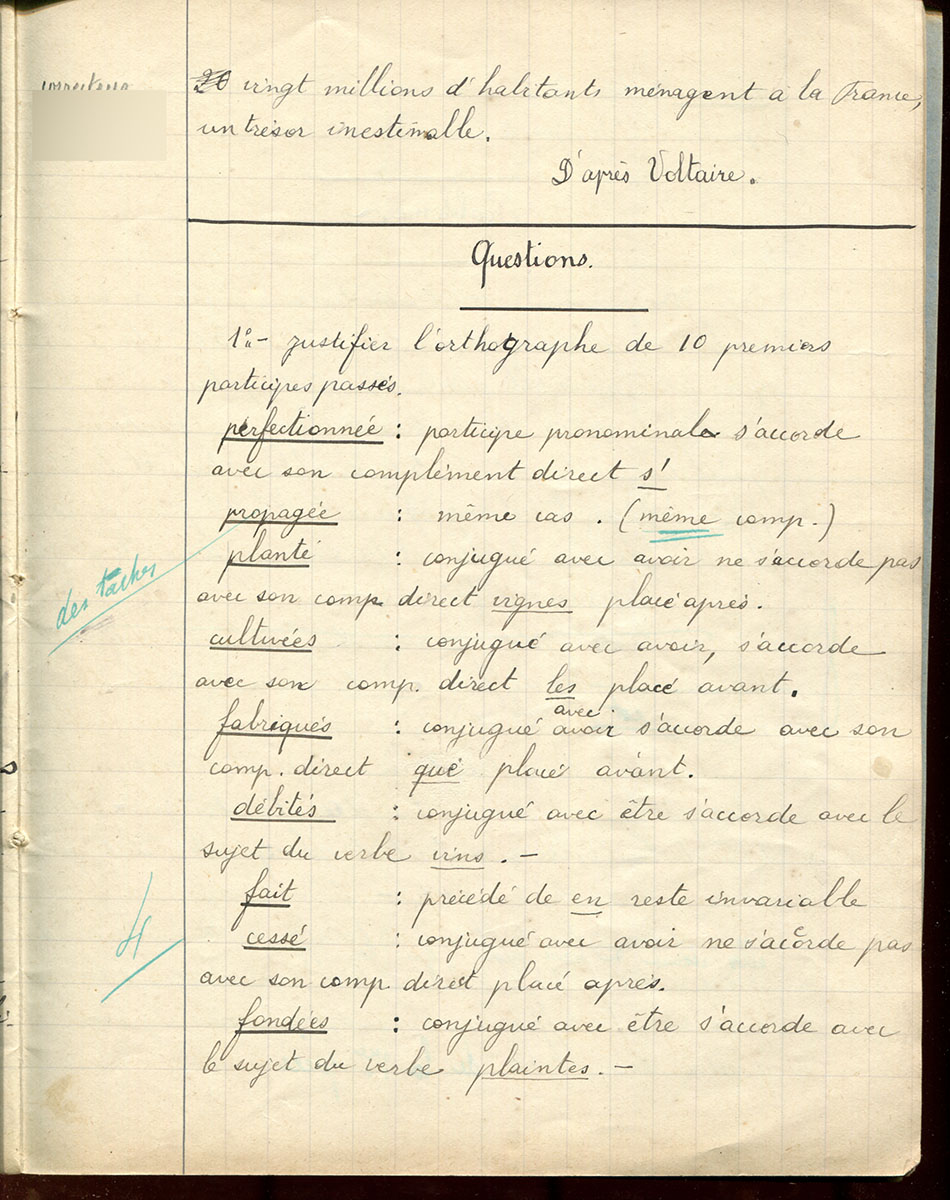 correcteur
20 vingt millions d'habitants ménagent à la France,
un trésor inestimable.
D'après Voltaire.
Questions.
1° - Justifier l'orthographe de 10 premiers
participes passés.
perfectionnée : participe pronominale s'accorde
avec son complément direct s'
propagée : même cas . (même comp.)
planté : conjugué avec avoir ne s'accorde pas
des taches
avec son comp. direct vignes placé après.
cultivées : conjugué avec avoir, s'accorde
avec son comp. direct les placé avant.
avec
fabriqués : conjugué avoir s'accorde avec son
comp. direct que placé avant.
débités : conjugué avec être s'accorde avec le
sujet du verbe vins . -
fait : précédé de en reste invariable
4
cessé : conjugué avec avoir ne s'accorde pas
avec son comp. direct placé après.
fondées : conjugué avec être s'accorde avec
le sujet du verbe plaintes. -